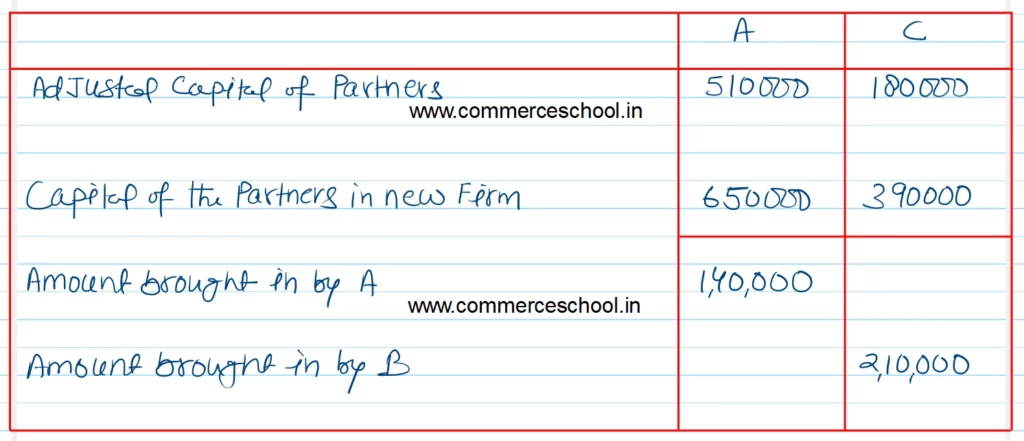 A C
Adjusted Capital of Partners 510000 180000
www.commerceschool.in
Capital of the Partners in new Firm 650000 390000
Amount brought in by A 1,40,000
www.commerceschool.in
Amount brought in by B 2,10,000